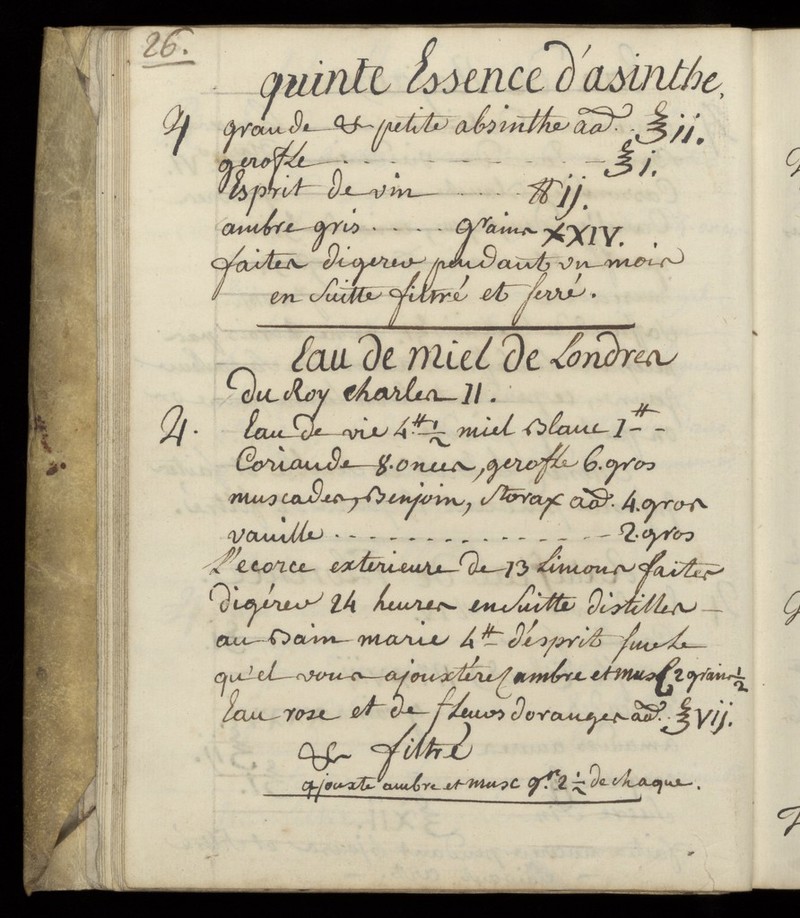 26.
quinte Essence d'asinthe,
♃ grande & petite absinthe aã. ℥ii.
gerofle - - - - - ℥i.
Esprit de vin - - - ℔ij.
ambre gris . . . . . grains XXIV.
faites digerer pendant un mois
en suitte filtré et serré.
Eau de miel de Londres
du Roy charles II.
♃. Eau de vie 4.℔ 1/2 miel Blanc 1℔ -
Coriande 8. onces, gerofle 6. gros
muscades, Benjoin, storax aã. 4. gros
vanille - - - - - - - - - - - - 2. gros
L'ecorce exterieure de 13 Limons faites
digérer 24 heures ensuitte distilles -
au Bain marie 4℔ d'ésprit sur le
qu'el vous ajouxterez ambre et musc 2 grains 1/2
Eau rose et de fleurs d'oranges aã. ℥vij.
& filtré
ajouxte ambre et musc grs. 2 1/2 de chaque.